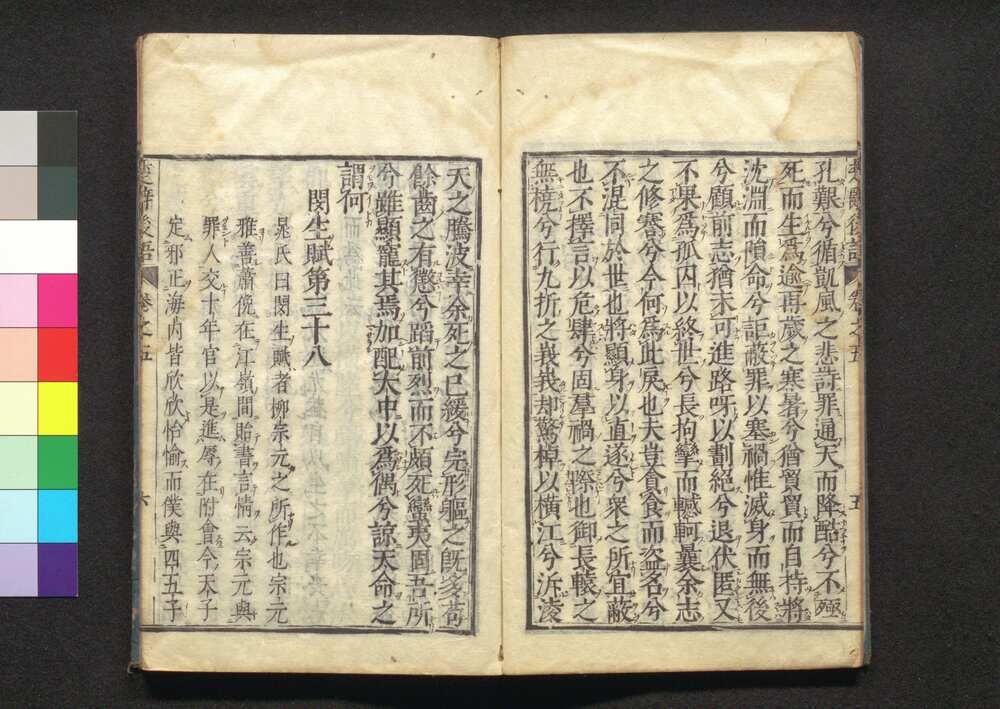 孔艱兮循凱風之悲詩罪通天而降酷兮不殛
死而生爲逾再歲之寒暑兮猶貿貿而自持將
沈淵而隕命兮詎蔽罪以塞禍惟滅身而無後
兮顧前志猶未可進路呀以劃絕兮退伏匿又
不果爲孤囚以終世兮長拘攣而轗軻曩余志
之修蹇兮今何爲此戾也夫豈貪食而盜名兮
不混同於世也將顯身以直遂兮衆之所宜蔽
也不擇言以危肆兮固羣禍之際也御長轅之
無橈兮行九折之峩峩却驚棹以橫江兮泝凌
天之騰波幸余死之已緩兮完形軀之旣多苟
餘齒之有懲兮蹈前烈而不頗死蠻夷固吾所
兮雖顯寵其焉加配大中以爲偶兮諒天命之
謂何
閔生賦第三十八
晁氏曰閔生賦者栁宗元之所作也宗元
雅善蕭俛在江嶺間貽書言情云宗元與
罪人交十年官以是進辱在附會今天子
定邪正海內皆欣欣怡愉而僕與四五子
楚辭後語 卷之五 六